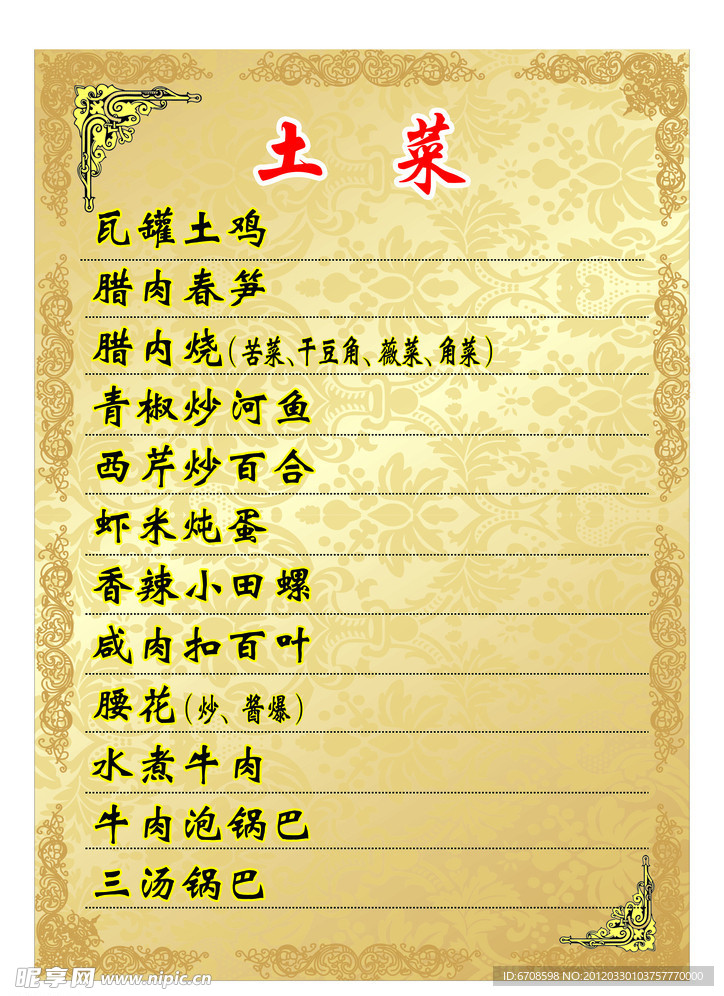 土 菜
瓦罐土鸡
腊肉春笋
腊内烧(苦菜、干豆角、薇菜、角菜)
青椒炒河鱼
西芹炒百合
虾米炖蛋
香辣小田螺
咸肉扣百叶
腰花(炒、酱爆)
水煮牛肉
牛肉泡锅巴
三汤锅巴
昵享网 www.nipic.cn
ID:6708598 NO:20120330103757770000